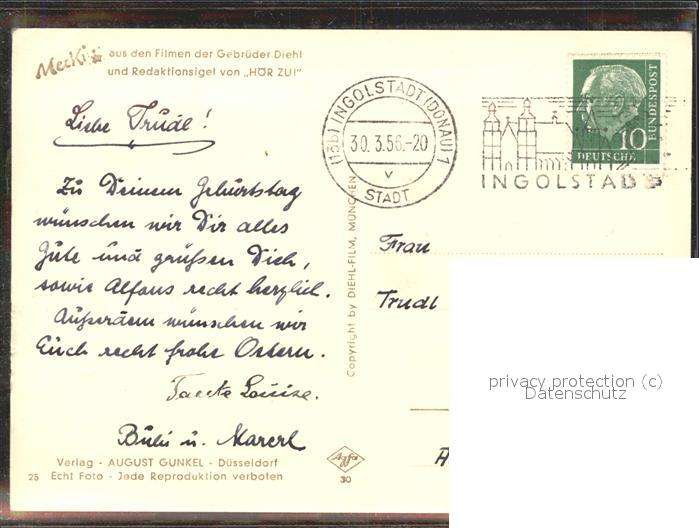 Mecki aus den Filmen der Gebrüder Diehl
und Redaktionsigel von „HÖR ZU!"
Liebe Trudl!
Zu Deinem Geburtstag
wünschen wir Dir alles
Gute und grüßen Dich,
sowie Alfons recht herzlich.
Außerdem wünschen wir
Euch recht frohe Ostern.
Tante Louise.
Bubi u. Marerl
Verlag - AUGUST GUNKEL - Düsseldorf
25 Echt Foto - Jede Reproduktion verboten
Copyright by DIEHL-FILM, MÜNCHEN
Agfa
30
(13b) INGOLSTADT (DONAU) 1
30.3.56.-20
v
STADT
INGOLSTADT
10
DEUTSCHE
BUNDESPOST
Frau
Trudl
A
privacy protection (c)
Datenschutz